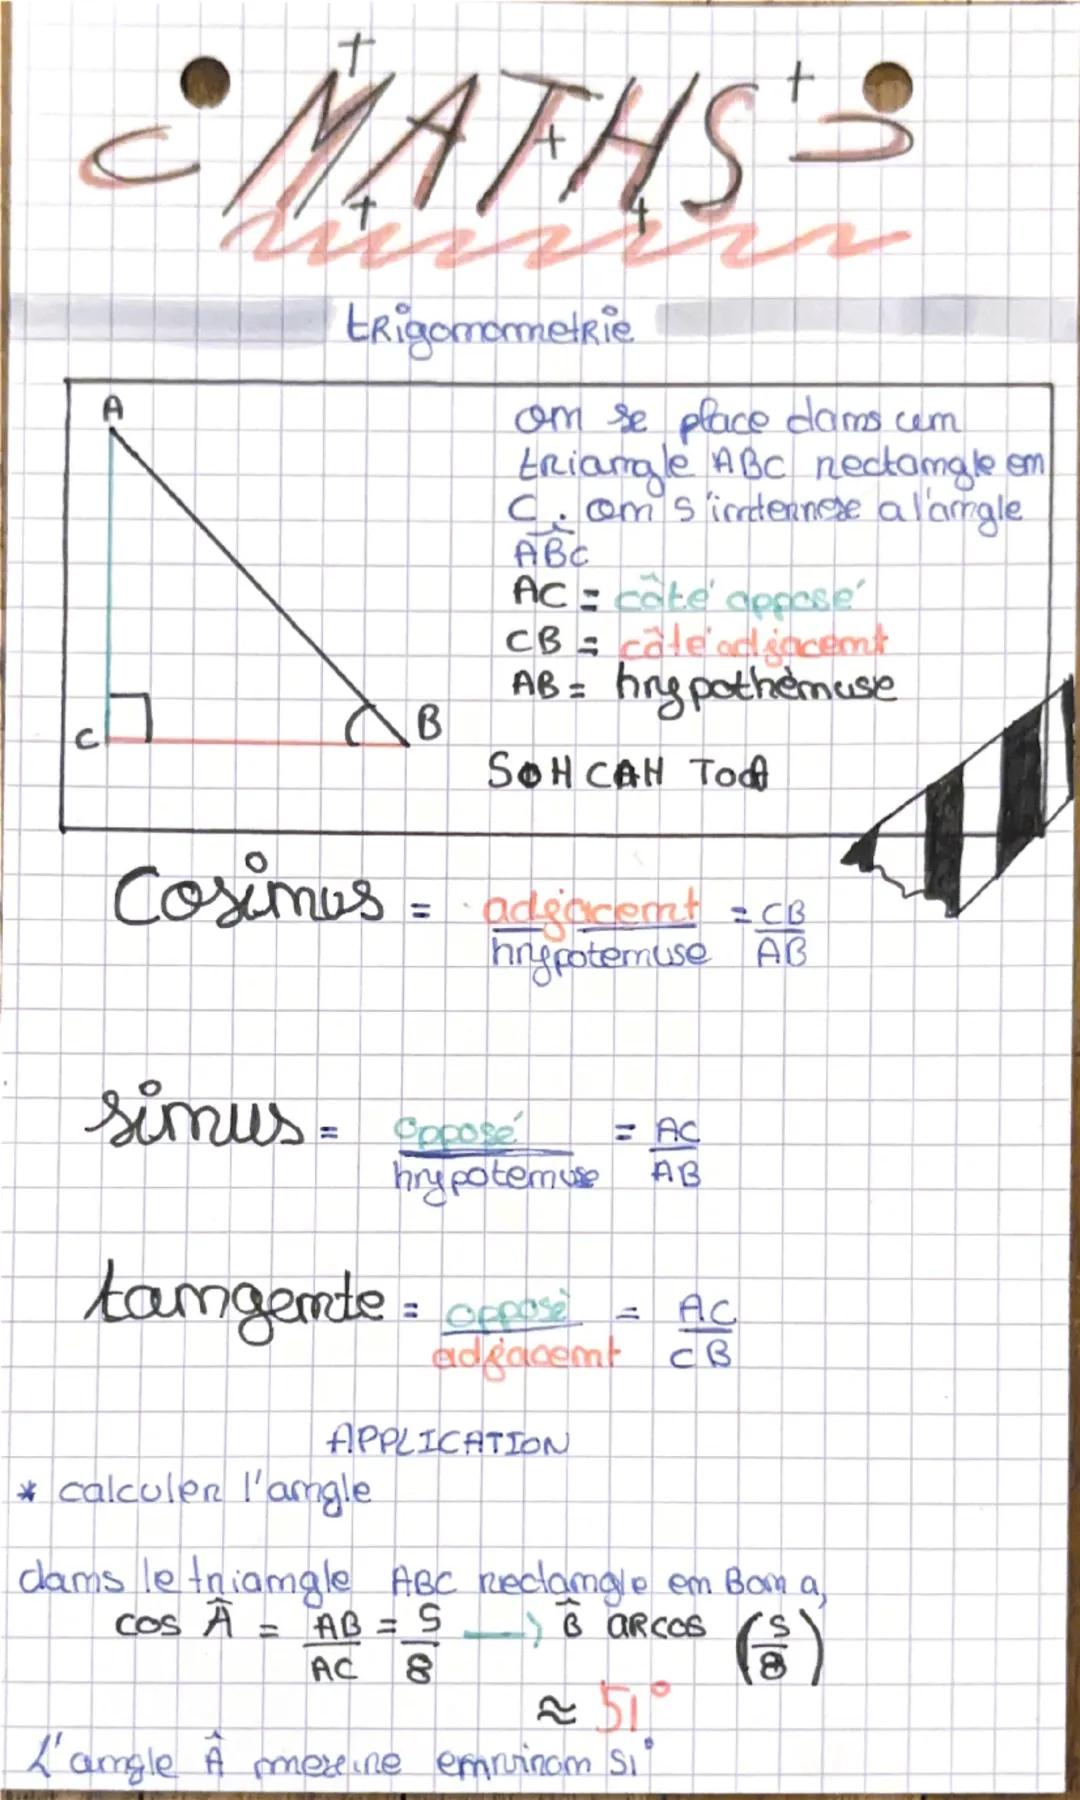 MATHS
trigonommetrie
A
C
B
on se place dans un
triangle ABC rectangle en
C. on s'interesse a l'angle
ABC
AC = côté opposé
CB = côté adjacent
AB = hypothènuse
SOH CAH TOA
Cosinus = adjacent / hypotenuse = CB / AB
sinus = opposé / hypotenuse = AC / AB
tangente = opposé / adjacent = AC / CB
APPLICATION
* calculer l'angle
dans le triangle ABC rectangle en B on a,
cos Â = AB / AC = 5 / 8 → B̂ arcos (5 / 8)
≈ 51°
L'angle Â mesure environ 51°